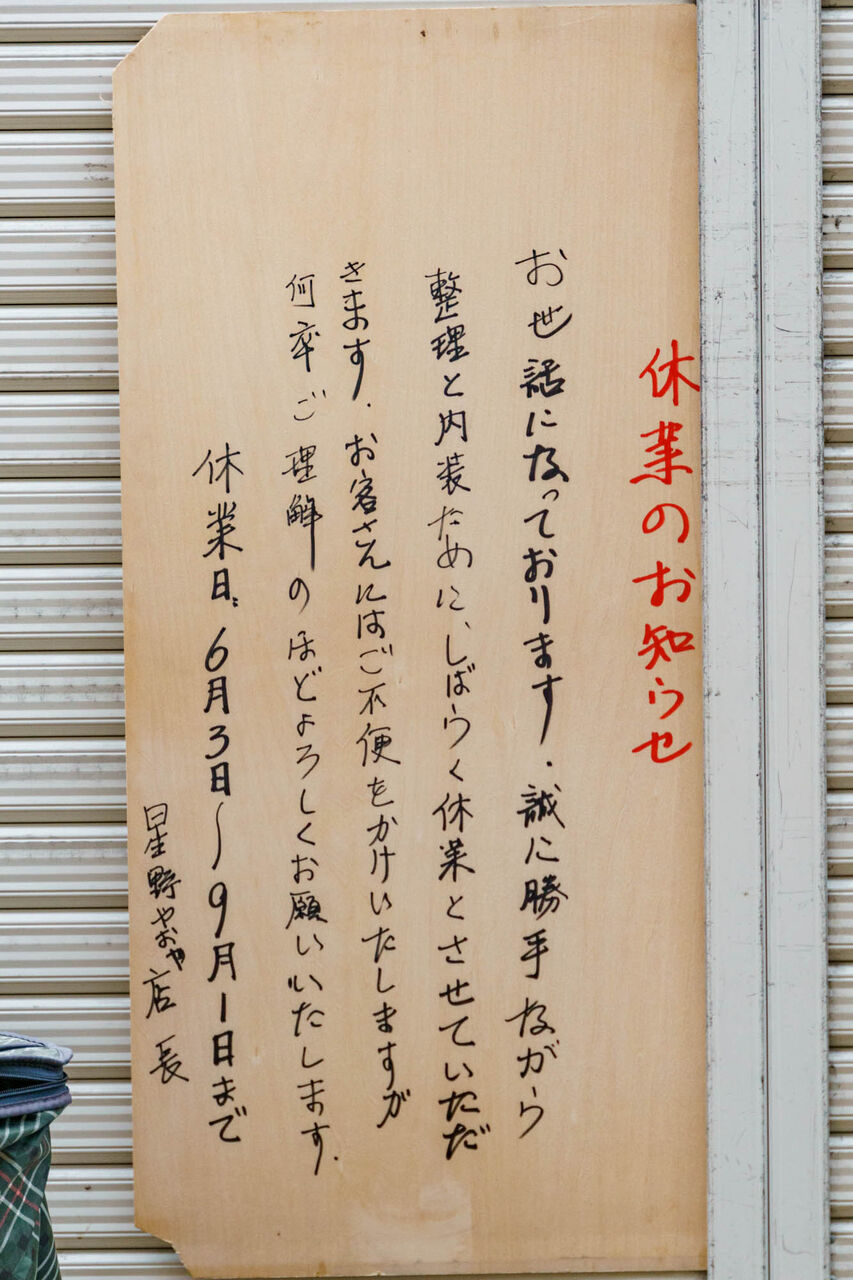 休業のお知らせ
お世話になっております．誠に勝手ながら
整理と内装ために、しばらく休業とさせていただ
きます．お客さんにはご不便をかけいたしますが
何卒ご理解のほどよろしくお願いいたします．
休業日：6月3日～9月1日まで
星野やおや店長